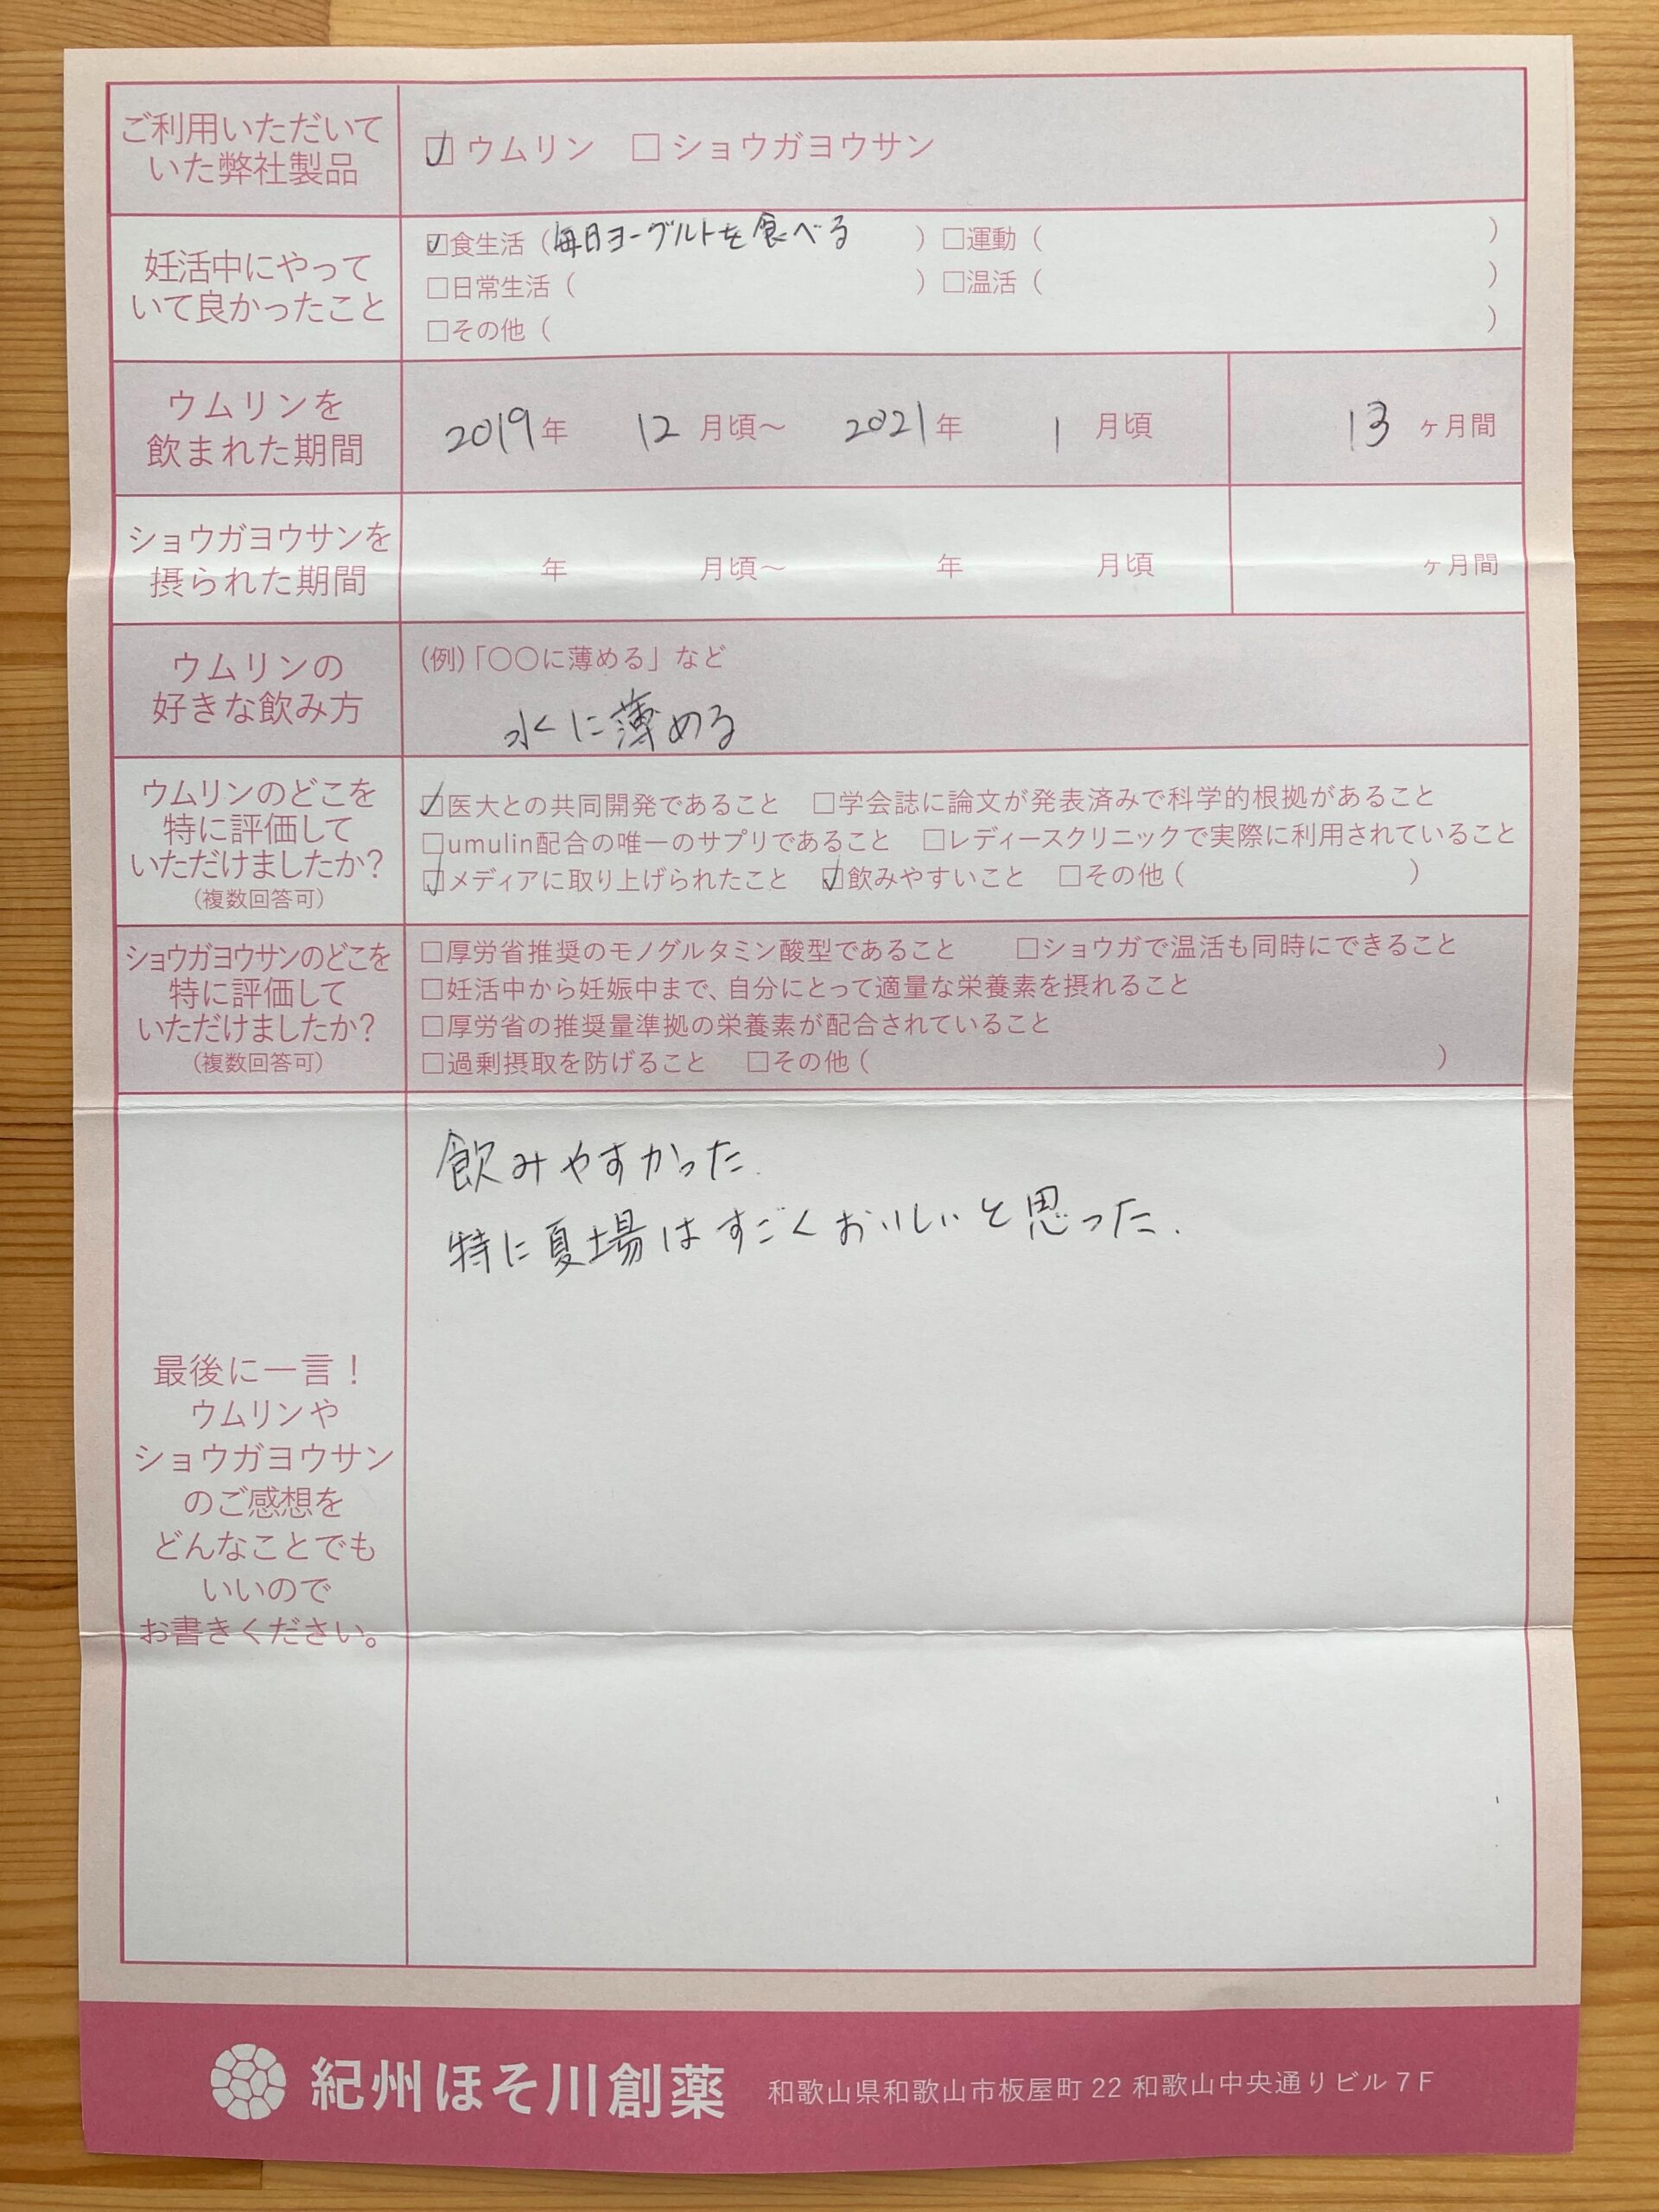 ご利用いただいて
いた弊社製品
☑ウムリン □ショウガヨウサン
妊活中にやって
いて良かったこと
☑食生活(毎日ヨーグルトを食べる) □運動( )
□日常生活( ) □温活( )
□その他( )
ウムリンを
飲まれた期間
2019年 12月頃〜 2021年 1月頃 13ヶ月間
ショウガヨウサンを
摂られた期間
年 月頃〜 年 月頃 ヶ月間
ウムリンの
好きな飲み方
(例)「○○に薄める」など
水に薄める
ウムリンのどこを
特に評価して
いただけましたか?
(複数回答可)
☑医大との共同開発であること □学会誌に論文が発表済みで科学的根拠があること
□umulin配合の唯一のサプリであること □レディースクリニックで実際に利用されていること
☑メディアに取り上げられたこと ☑飲みやすいこと □その他( )
ショウガヨウサンのどこを
特に評価して
いただけましたか?
(複数回答可)
□厚労省推奨のモノグルタミン酸型であること □ショウガで温活も同時にできること
□妊活中から妊娠中まで、自分にとって適量な栄養素を摂れること
□厚労省の推奨量準拠の栄養素が配合されていること
□過剰摂取を防げること □その他( )
最後に一言!
ウムリンや
ショウガヨウサン
のご感想を
どんなことでも
いいので
お書きください。
飲みやすかった.
特に夏場はすごくおいしいと思った.
紀州ほそ川創薬 和歌山県和歌山市板屋町 22 和歌山中央通りビル 7 F